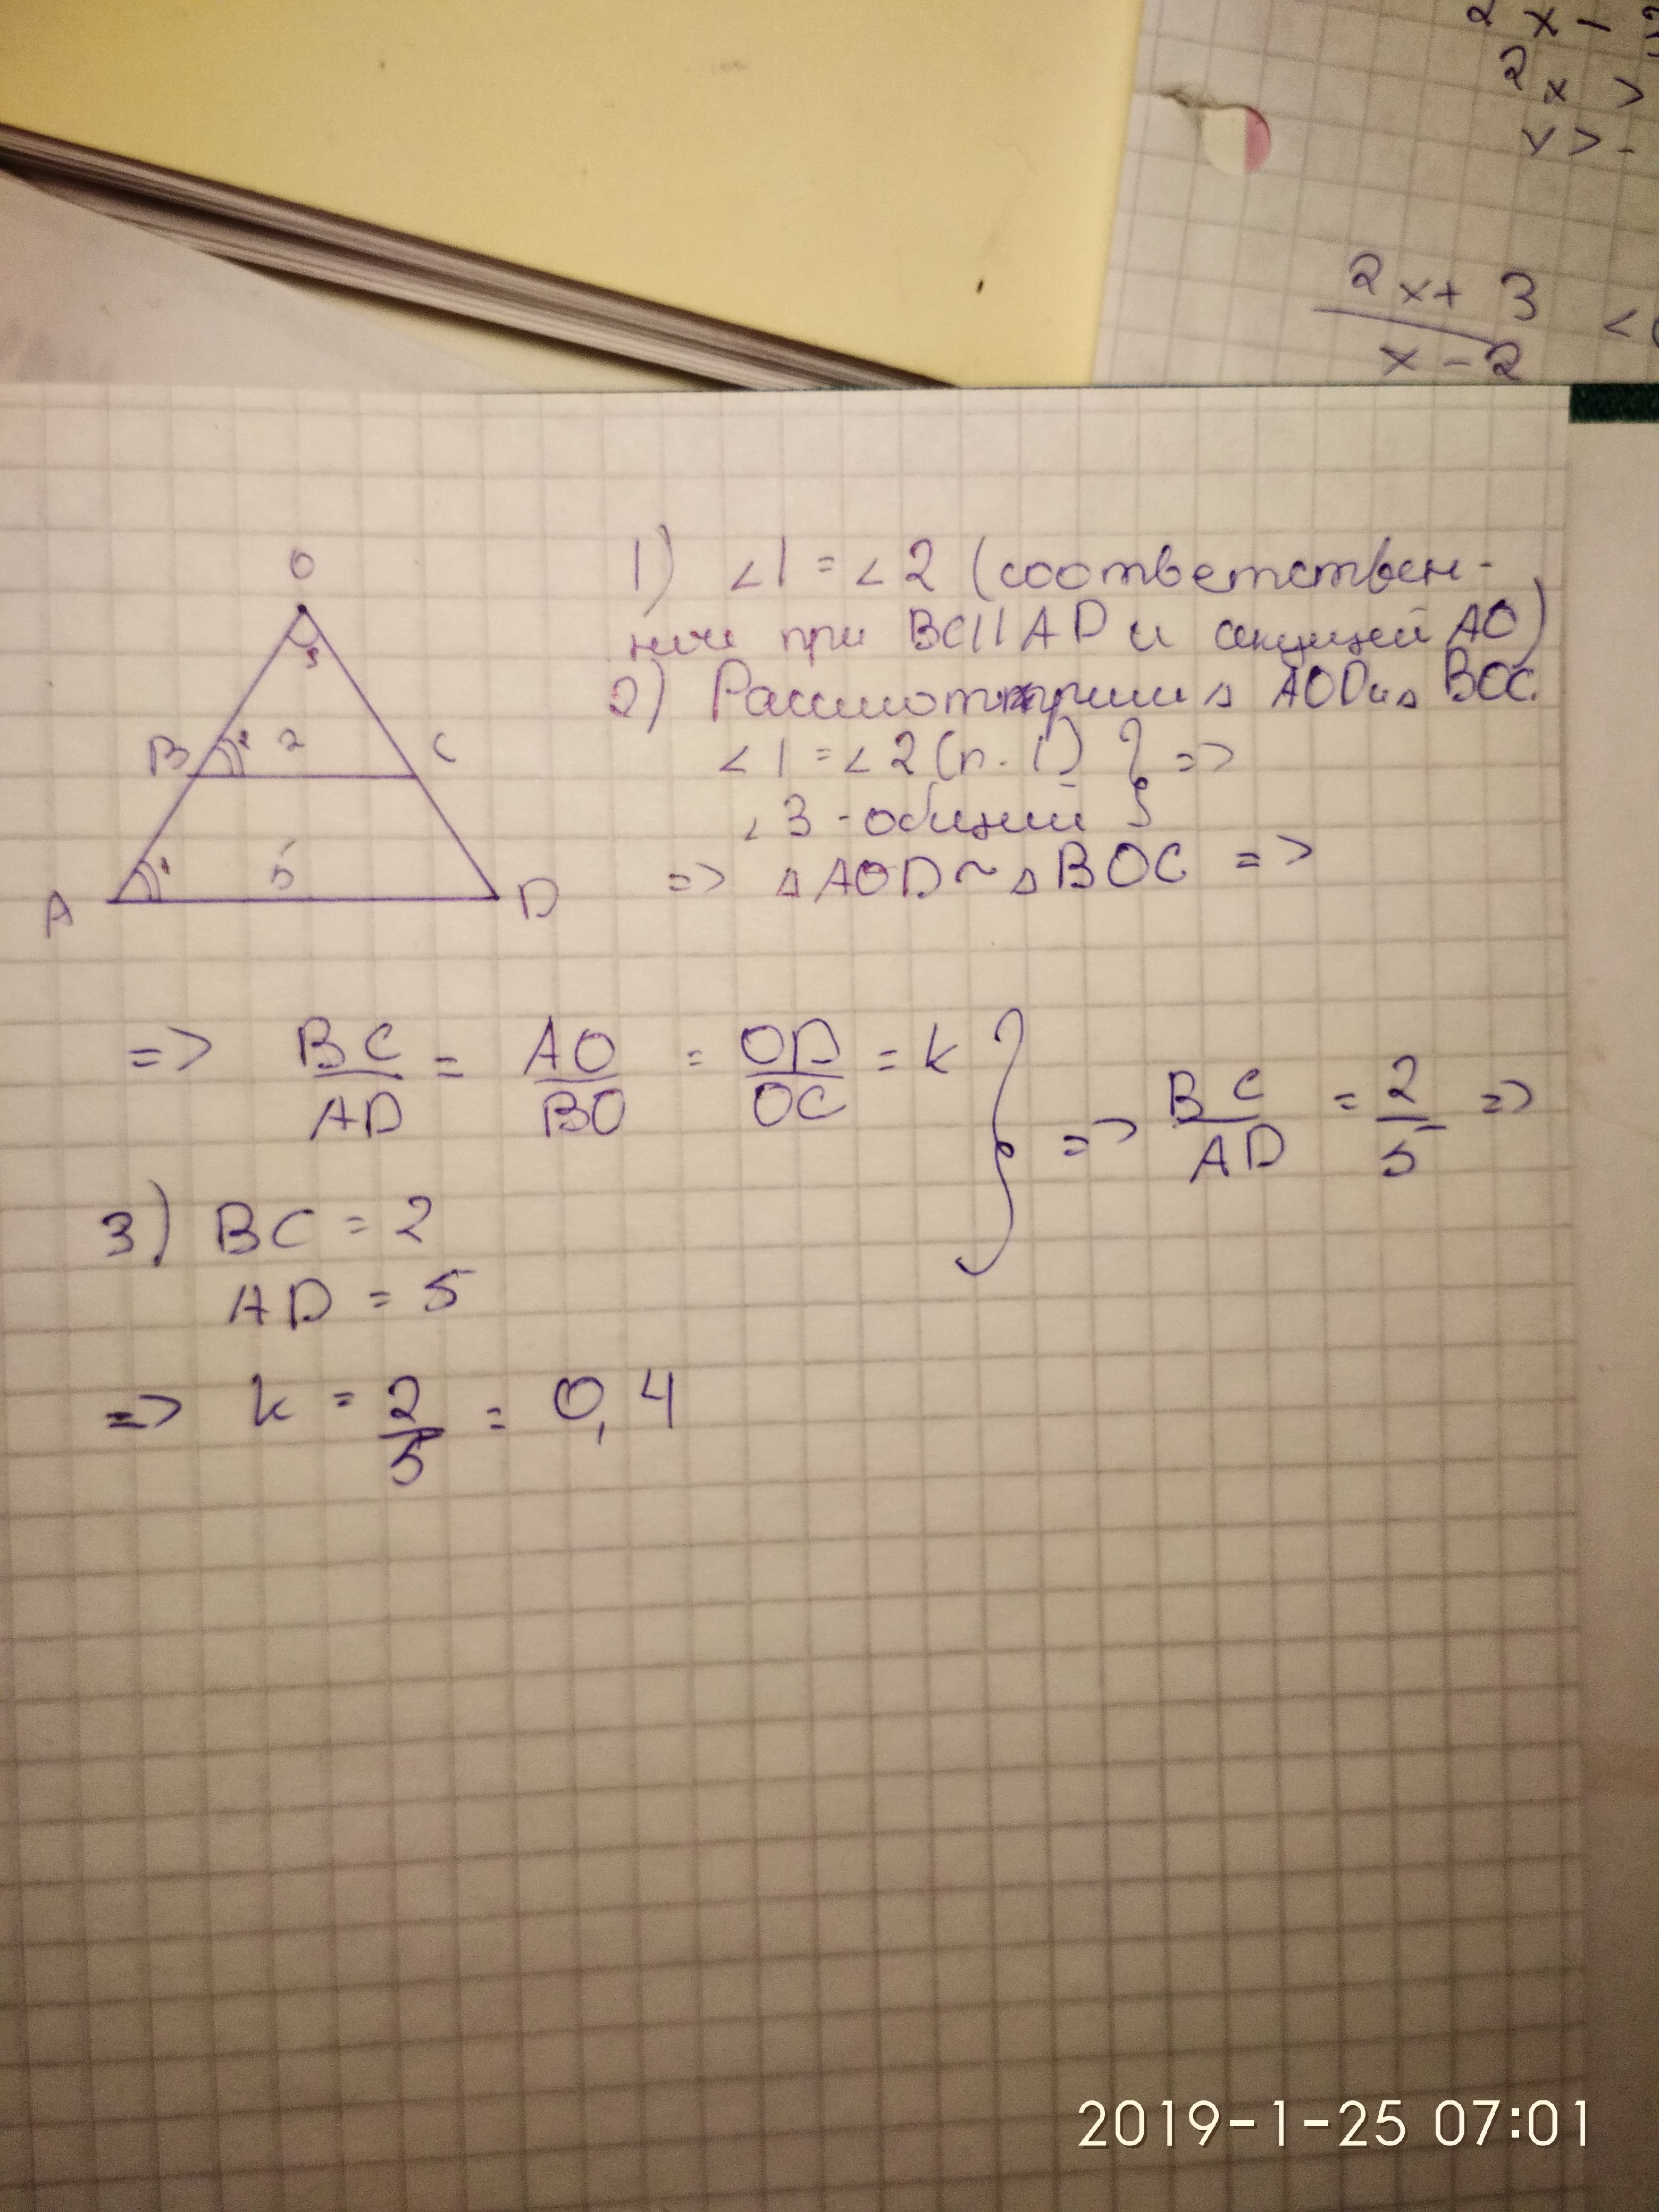 2x-
2x >
x > -
2x+3
x-2
<
O
3
B 2 2 C
1 5
A D
1) ∠1 = ∠2 (соответствен-
ные при BC||AD и секущей AO)
2) Рассмотрим △ AOD и △ BOC.
∠1 = ∠2 (п. 1) } =>
∠3 - общий
=> △AOD ~ △BOC =>
=> BC/AD = AO/BO = OD/OC = k } => BC/AD = 2/5 =>
3) BC = 2
AD = 5
=> k = 2/5 = 0,4
2019-1-25 07:01